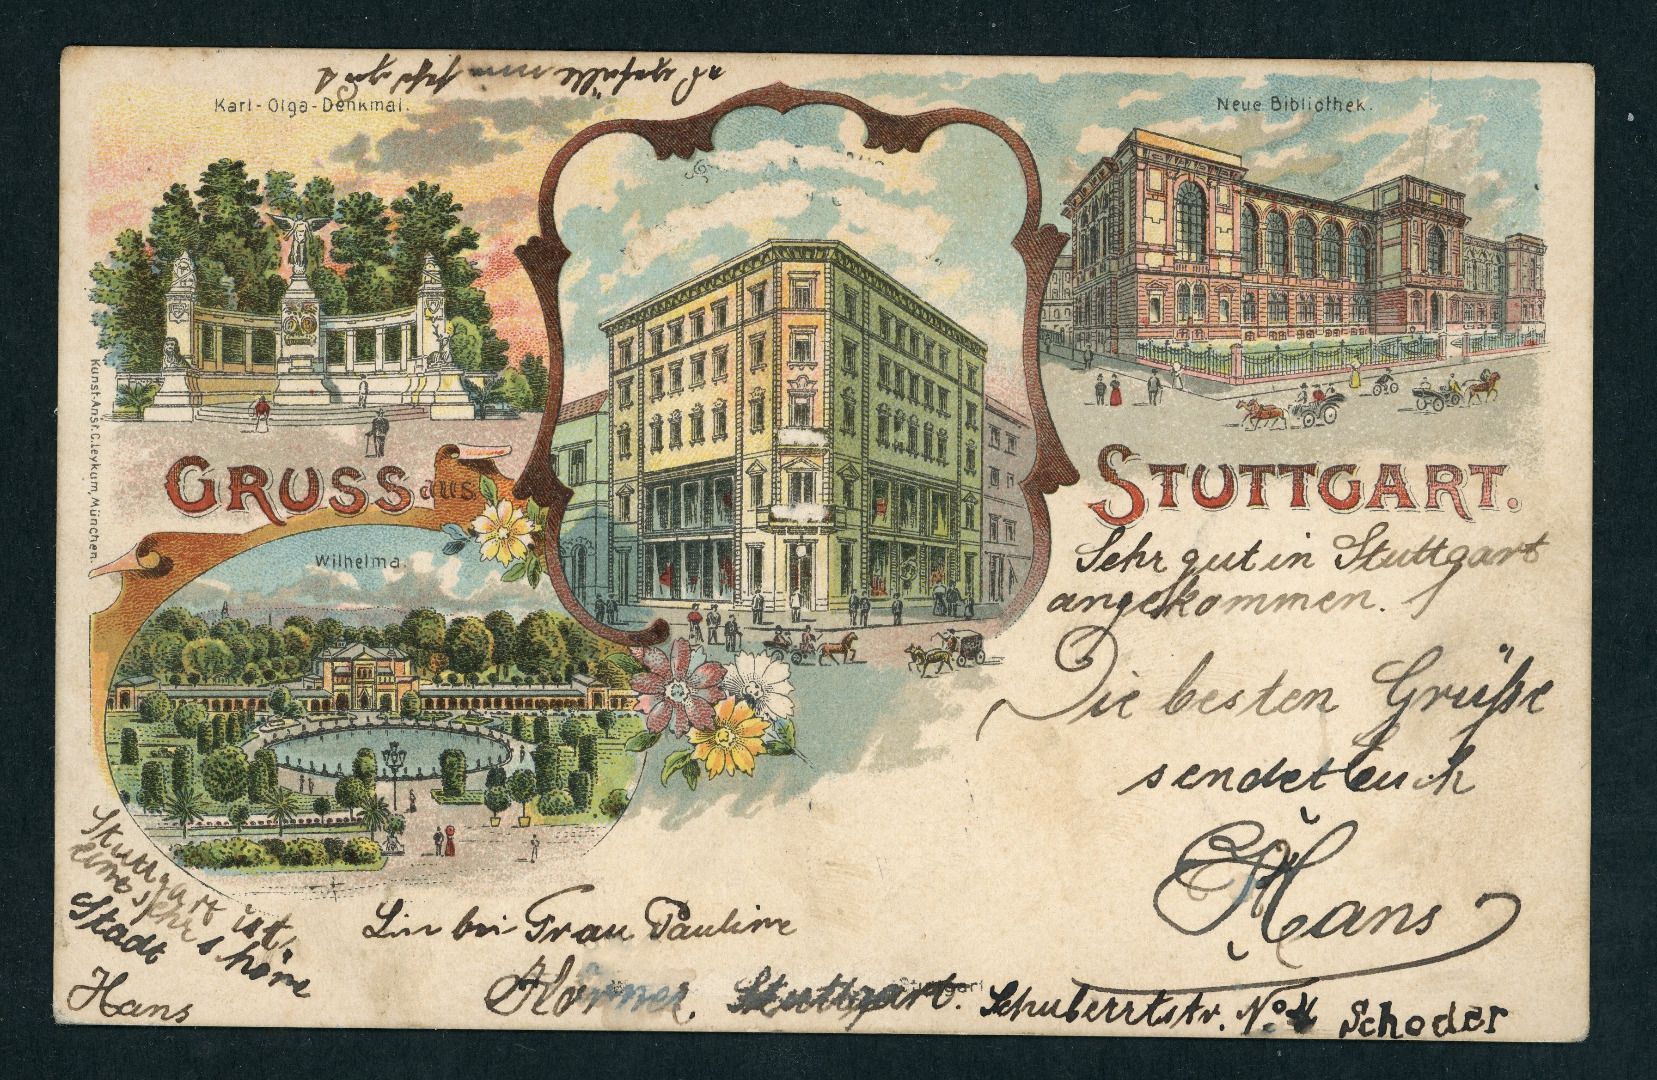 es gefällt mir sehr gut
Karl-Olga-Denkmal.
Neue Bibliothek.
Kunst-Anst. C. Leykum, München.
GRUSS aus
STUTTGART.
Wilhelma.
Sehr gut in Stuttgart
angekommen.
Die besten Grüße
sendet Euch
Hans
Stuttgart ist
eine sehr schöne
Stadt
Hans
bei Frau Pauline
Stuttgart. Schuberrtstr. No. 4 Schoder